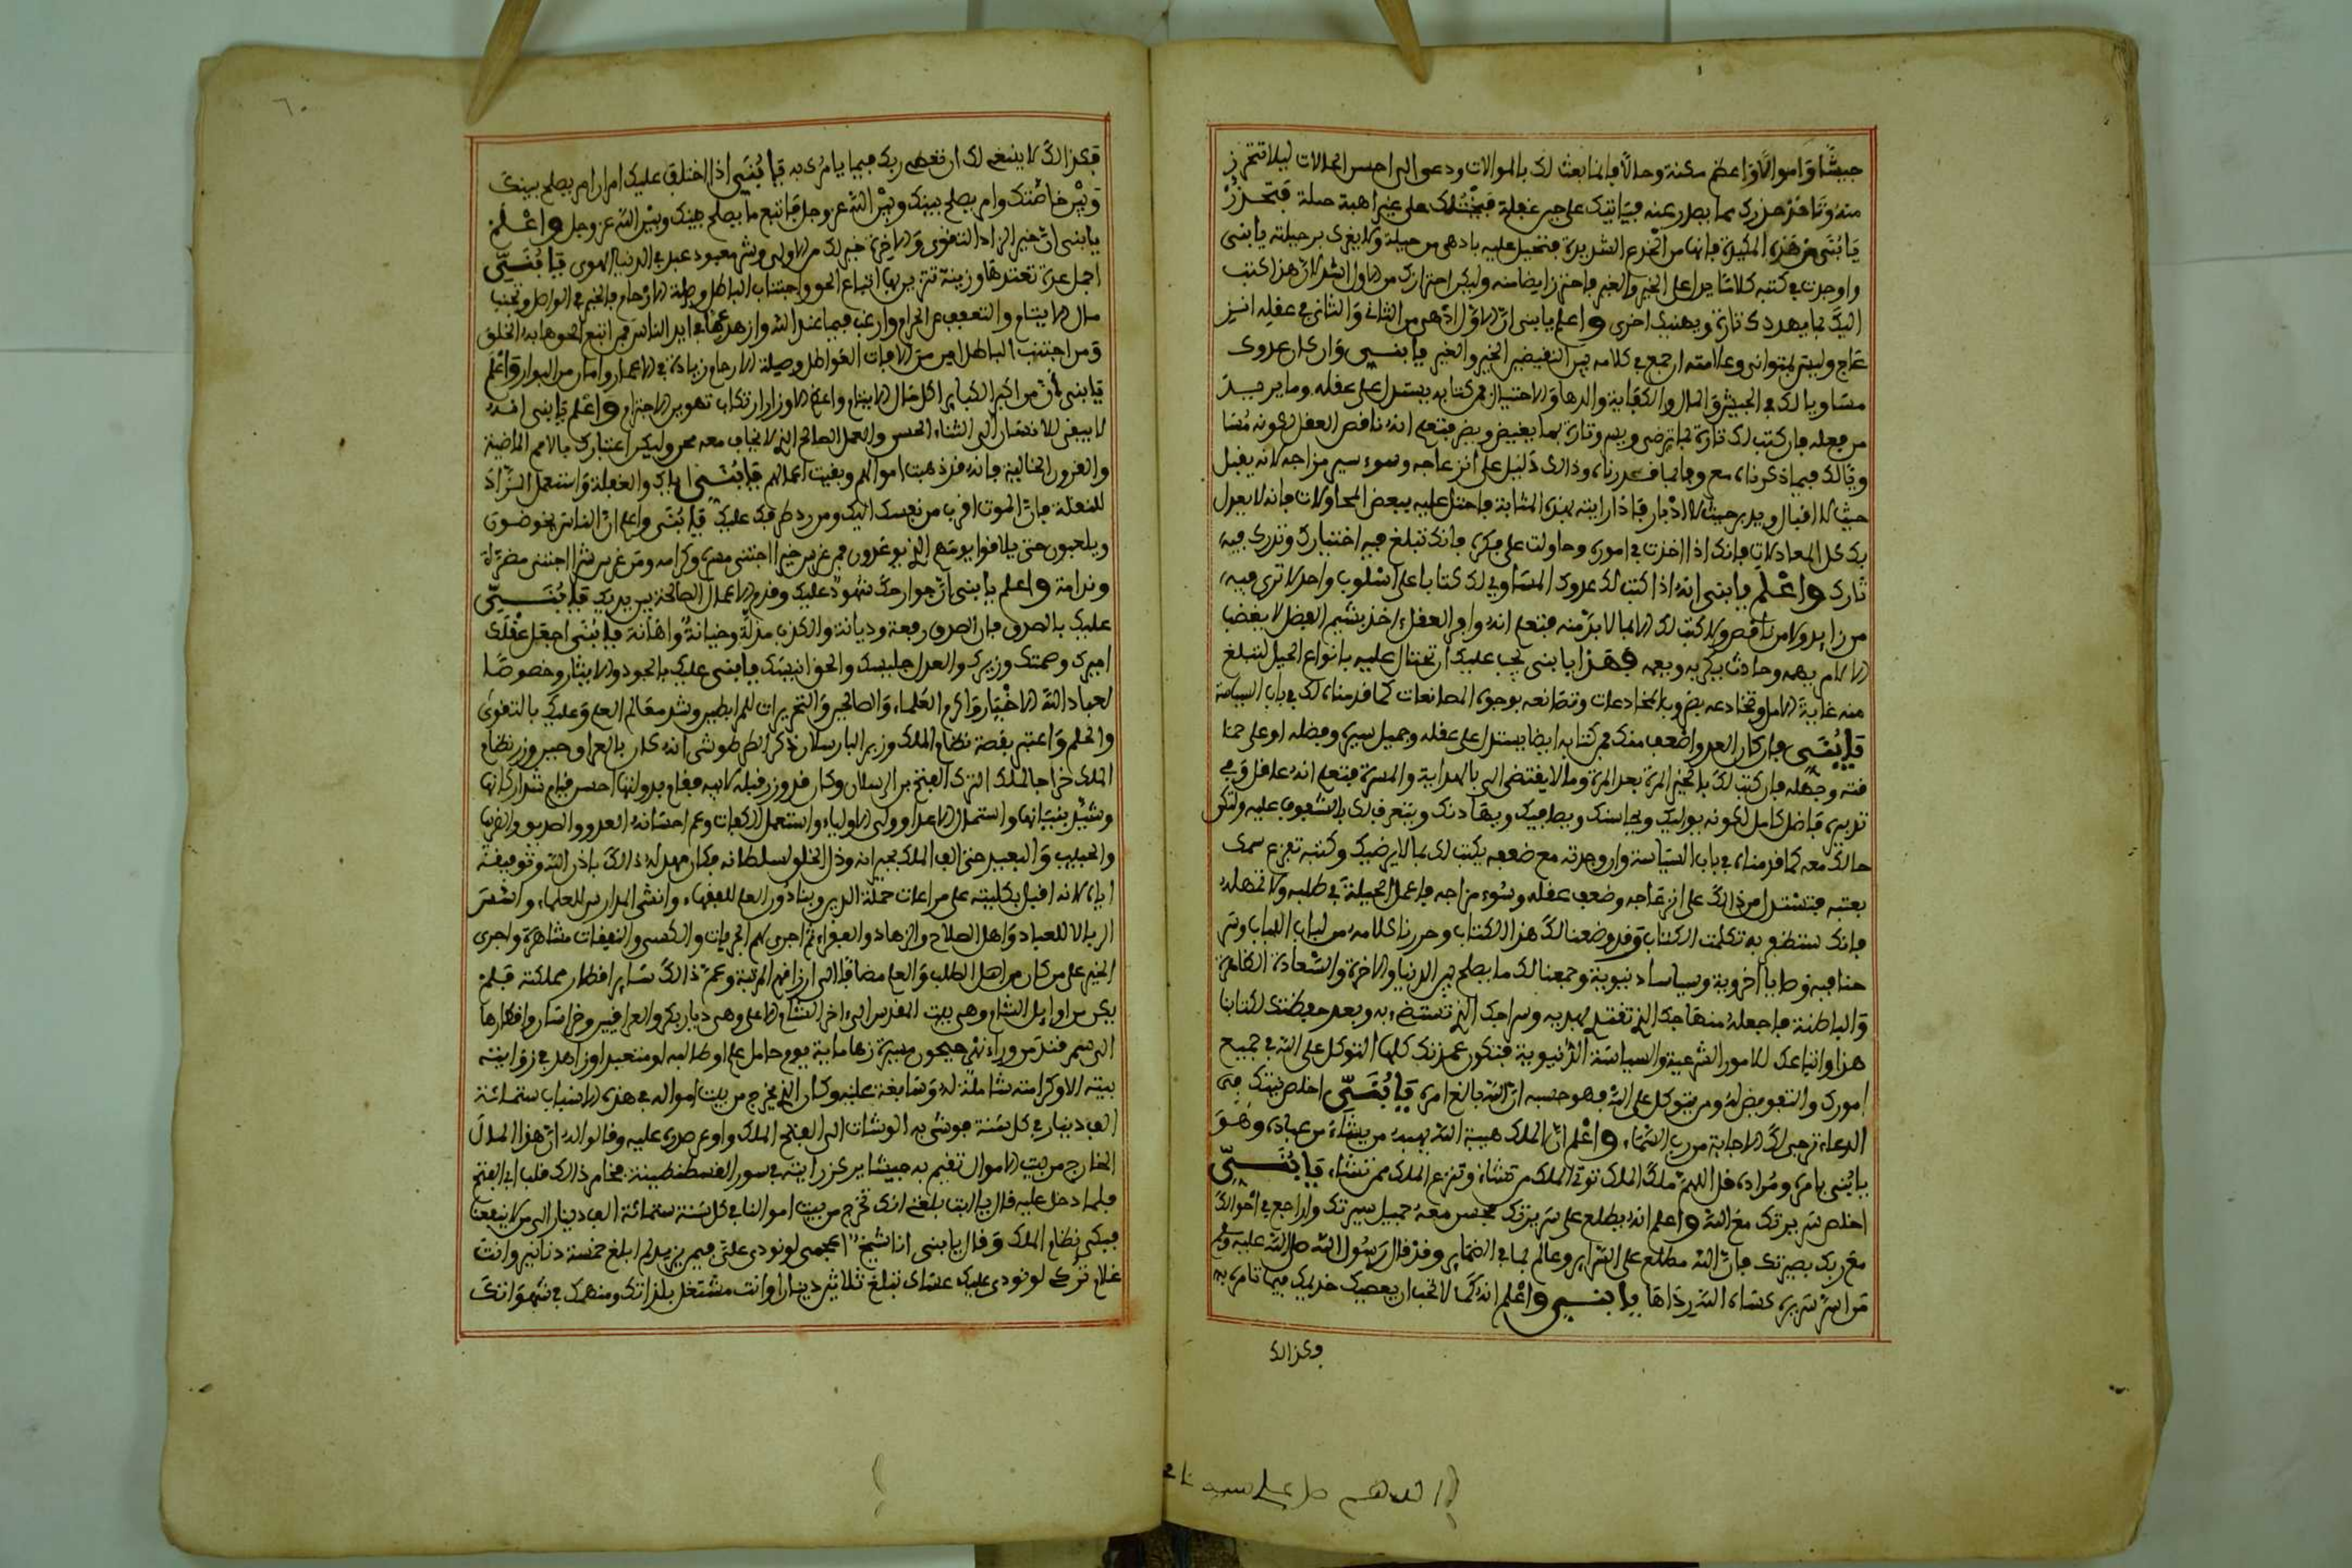 جيشا واموالا واعظم مكنة وحالا فإنما يبعث لك بالموالات ودعوى الى احسن الحالات ليلا تتحرز
منه وتاخذ حذرك مما يصدر عنه فياتيك على حين غفلة
يا بني من هذه المكيدة فإنها من الخدع الشديدة فتحيل عليه بادهى من حيلة يا بني
واوجدت في كتبه كلاما يدل على الخير والغير فاحترز ايضا منه وليكن احترازك من الاول اشد لان هذا كتب
اليك بما يهددك تارة ويهنيك اخرى واعلم يا بني ان الاول ادهى من الثاني والثاني في عقله
وعلامته ان جمع في كلامه بين النقيضين الخير والغير يا بني وان كان عدوك
مساويا لك في الجيش والمال والكفاية والدها والاحتيال فمن كتابه يستدل على عقله وما يريد
من فعله فان كتب لك تارة بما يرضي ويسر وتارة بما يغيض ويضر فتعلم انه ناقص العقل لكونه مساويا
لك فيما ذكرناه وذالك دليل على انزعاجه وسوء سير مزاجه لانه يقبل
حيث لا اقبال ويدبر حيث لا ادبار فإذا رايته بهذه المثابة فاحتل عليه ببعض المحاولات فإنه لا يعدل
بك كل المعادلات فإنك اذا اخذت في اموره وحاولت على مكره فإنك تبلغ فيه اختيارك وتدرك فيه
ثارك واعلم يا بني انه اذا كتب لك عدوك المساوي لك كتابا على اسلوب واحد لا ترى فيه
من زايد ولا من ناقص ولا كتب لك الا بما لا بد منه فتعلم انه وافر العقل اخذ بشيم الفضل لا يغضب
الا لامر يهمه وحادث يكربه ويعمه فهذا يا بني يجب عليك ان تحتال عليه بانواع الحيل لتبلغ
منه غاية الامل وتخادعه بضروب المخادعات وتصانعه بوجوه المصانعات كما قدمناه لك في باب السياسة
يا بني فإن كان العدو اضعف منك فمن كتابه ايضا يستدل على عقله وجميل سيره وفضله او على حمقه
وجهله فإن كتب لك بالخير المرة بعد المرة وما لا يفتضي الى بالهداية والمسرة فتعلم انه عاقل وفي
تدبيره فاضل كامل لكونه يواليك ويجانبك ويصافيك ويهادنك ويتعرف لك بالشفوف عليه ولتكن
حالك معه كما قدمناه في باب السياسة وان وجدته مع ضعفه يكتب لك بما لا يرضيك وكتبه تفزع سمعك
بعتبه فتستدل من ذالك على انزعاجه وضعف عقله وسوء مزاجه فاعمل الحيلة في طلبه ولا تمهله
فإنك ستظفر به تكلمت الكتاب وقد وضعنا لك هذا الكتاب وحررنا كلامه من لباب اللباب وبنينا
فيه وصايا اخروية وسياسا دنيوية وجمعنا لك ما يصلح بين الدنيا والاخرة والسعادة الظاهرة
والباطنة فاجعله منهاجك الذي تقتدي بهديه وسراجك الذي تستضيء به وبعد حفظك لكتابنا
هذا واتباعك للامور الشرعية والسياسة الدنيوية فتكون عمدتك كلها التوكل على الله في جميع
امورك والتفويض له ومن يتوكل على الله فهو حسبه ان الله بالغ امره يا بني اخلص نيتك في
الدعاء ترجى لك الاجابة من رب السماء واعلم ان الملك هبة الله يهبه من يشاء من عباده وهو
قل اللهم ملك الملك توتي الملك من تشاء وتنزع الملك ممن تشاء يا بني
اخلص سريرتك مع الله واعلم انه يطلع على سريرتك فحسن معه جميل سيرتك وراجع في احوالك
مع ربك بصيرتك فإن الله مطلع على السراير وعالم بما في الضماير وقد قال رسول الله صلى الله عليه وسلم
من اسر سريرة كساه الله رداها يا بني واعلم انه كما لا تحب ان يعصيك خديمك فيما تامره به
وكذالك
اللهم صل على سيدنا محمد
٦٠
فكذالك لا ينبغي لك ان تعصي ربك فيما يامرك به يا بني اذا اختلف عليك امران امر يصلح بينك
وبين خاصتك وامر يصلح بينك وبين الله عز وجل فاتبع ما يصلح بينك وبين الله عز وجل واعلم
يا بني ان خير الزاد التقوى والاخرة خير لك من الاولى وشر معبود عبد في الدنيا الهوى يا بني
اجمل عدة تعتدها وزينة تتزين بها اتباع الحق واجتناب الباطل وصلة الارحام فالخير في الوصل وتجنب
مال الايتام والتعفف عن الحرام وارغب فيما عند الله وازهد عما في ايد الناس فمن اتبع الحق هابه الخلق
ومن اجتنب الباطل امن من الافات العواطل وصلة الارحام زيادة في الاعمار وامان من البوار واعلم
يا بني ان من اكبر الكباير اكل مال الايتام واعظم الاوزار ارتكاب تهوين الاجترام واعلم يا بني انه
لا يبقى للانسان الا الثناء الحسن والعمل الصالح الذي لا يخاف معه وليكن اعتبارك بالامم الماضية
والقرون الخالية فإنه قد ذهبت اموالهم وبقيت اعمالهم يا بني اياك والغفلة واستعمل الزاد
للنقلة فإن الموت اقرب من نفسك اليك ومن رد طرفك عليك يا بني واعلم ان الناس يخوضون
ويلعبون حتى يلاقوا يومهم الذي يوعدون فمن غرس خيرا اجتنى مسرة وكرامة ومن غرس شرا اجتنى مضرة
وندامة واعلم يا بني ان جوارحك شهود عليك وقدم الاعمال الصالحة بين يديك يا بني
عليك بالصدق فإن الصدق رفعة وديانة والكذب مذلة وخيانة واهانة يا بني اجعل عقلك
اميرك وصمتك وزيرك والعدل جليسك والحق انيسك يا بني عليك بالجود والايثار وخصوصا
لعباد الله الاخيار واكرم العلماء والصالحين وشد معالم العلم وعليك بالتقوى
والحلم واعتبر بقصة نظام الملك وزير البارسلان ذكر الطرطوشي انه كان بالعراق حين وزر نظام
الملك خراجا للملك التركي ابي الفتح بن الرسلان وكان قد وزر قبله لابيه فقام بدولتها احسن قيام فشد اركانها
وشيد بنيانها واستمال الاعدا ووالى الاولياء واستعمل الكفات وعم احسانه العدو والصديق والقريب
والحبيب والبعيد حتى الف الملك بجيرانه وذل الخلق لسلطانه فكان مهد له ذالك باذن الله وتوفيقه
اياه لانه اقبل بكليته على مراعات حملة الدين وبنا دور العلم للفقهاء وانشى المدارس للعلماء وانشى
الربالا للعباد واهل الصلاح والزهاد والفقراء ثم اجرى لهم الجريات والكسى والنفقات مشاهرة واجرى
الخبز على من كان من اهل الطلب والعلم مضافا الى ارزاقهم المرتبة وعم ذالك ساير اقطار مملكته فلم
يكن من اوايل الشام وهي بيت المقدس الى اخر الشام الاعلى وهي ديار بكر والعراقين وخراسان واقطارها
الى سمرقند من وراء نهر جيحون مسيرة زها ماية يوم حامل علم او طالبه او متعبد او زاهد في زاويته
بيته الا وكرامته شاملة له وسابغة عليه وكان الذي يخرج من بيت امواله في هذه الاسباب ستمائة
الف دينار في كل سنة فوشى به الوشات الى ابي الفتح الملك واوغر صدره عليه وقالوا له ان هذا المال
الخارج من بيت الاموال تقيم به جيشا يركز رايته في سور القسطنطينية فخامر ذالك قلب ابي الفتح
فلما دخل عليه قال يا ابت بلغني انك تخرج من بيت اموالنا في كل سنة ستمائة الف دينار الى من لا ينفعنا
فبكى نظام الملك وقال يا بني انا شيخ اعجمي لو نودي علي فيمن يزيد لم ابلغ خمسة دنانير وانت
غلام تركي لو نودي عليك عساك تبلغ ثلاثين دينارا وانت مشتغل بلذاتك ومنهمك في شهواتك